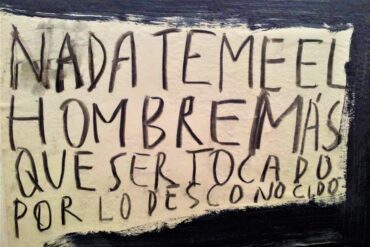 NADA TEME EL
HOMBRE MÁS
QUE SER TOCADO
POR LO DESCONOCIDO